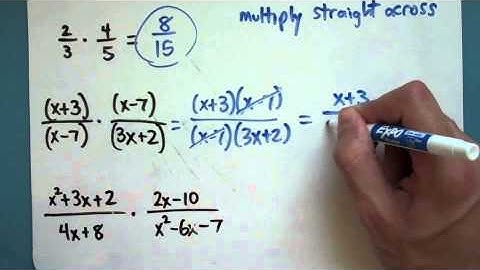 multiply straight across
2/3 · 4/5 = 8/15
(x+3)/(x-7) · (x-7)/(3x+2) = (x+3)(x-7)/(x-7)(3x+2) = x+3
EXPO
x²+3x+2/4x+8 · 2x-10/x²-6x-7